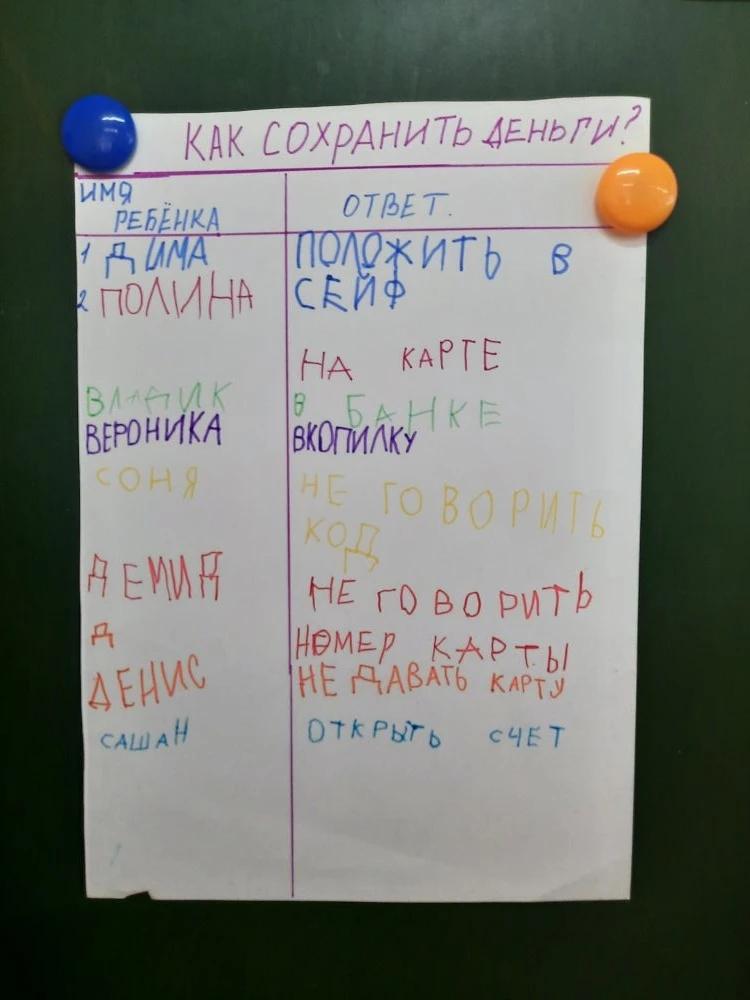 КАК СОХРАНИТЬ ДЕНЬГИ?
ИМЯ
РЕБЁНКА
ОТВЕТ.
1 ДИМА
ПОЛОЖИТЬ В
СЕЙФ
2 ПОЛИНА
НА КАРТЕ
ВЛАДИК
В БАНКЕ
ВЕРОНИКА
ВКОПИЛКУ
СОНЯ
НЕ ГОВОРИТЬ
КОД
ДЕМИД
НЕ ГОВОРИТЬ
НОМЕР КАРТЫ
Д
ДЕНИС
НЕ ДАВАТЬ КАРТУ
САША Н
ОТКРЫТЬ СЧЕТ